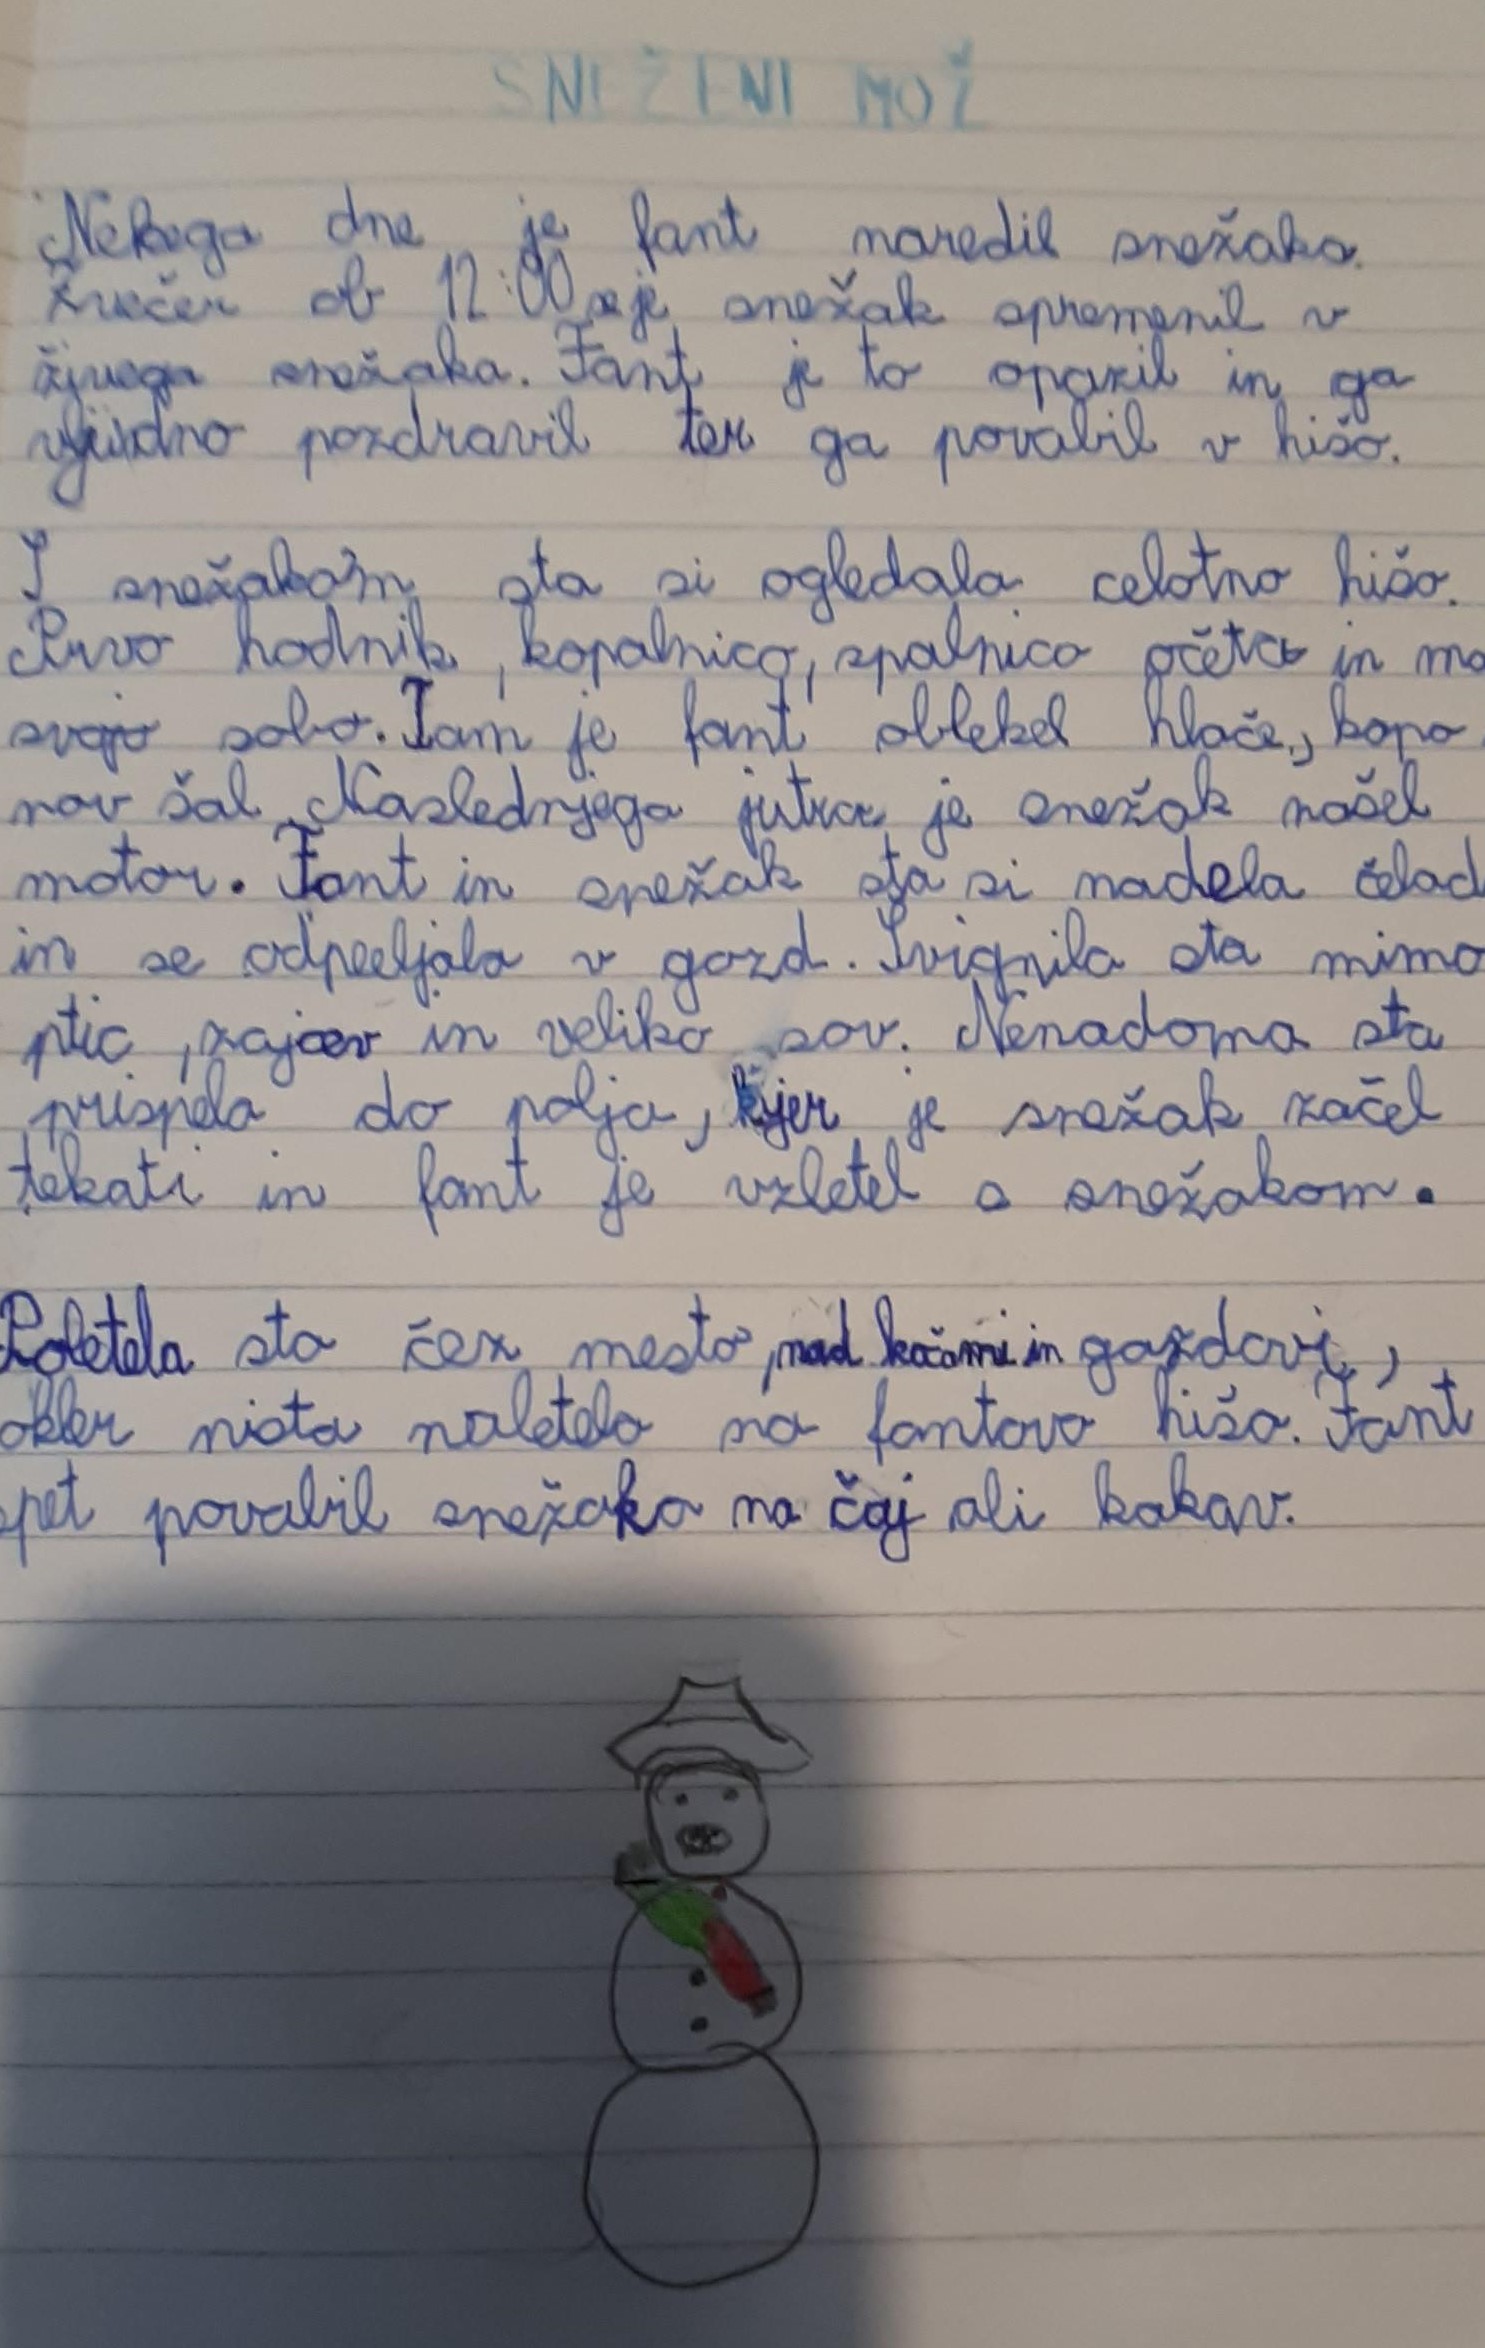 SNEŽENI MOŽ
Nekega dne je fant naredil snežaka.
Zvečer ob 12:00 se je snežak spremenil v
živega snežaka. Fant je to opazil in ga
vljudno pozdravil ter ga povabil v hišo.
S snežakom sta si ogledala celotno hišo.
Prvo hodnik, kopalnico, spalnico očeta in ma
svojo sobo. Tam je fant oblekel hlače, kapo
nov šal. Naslednjega jutra je snežak našel
motor. Fant in snežak sta si nadela čelad
in se odpeeljala v gozd. Švignila sta mimo
ptic, zajcev in veliko sov. Nenadoma sta
prispela do polja, kjer je snežak začel
tekati in fant je vzletel s snežakom.
Poletela sta čez mesto, nad kočami in gozdovi,
okler nista naletela na fantovo hišo. Fant
spet povabil snežaka na čaj ali kakav.